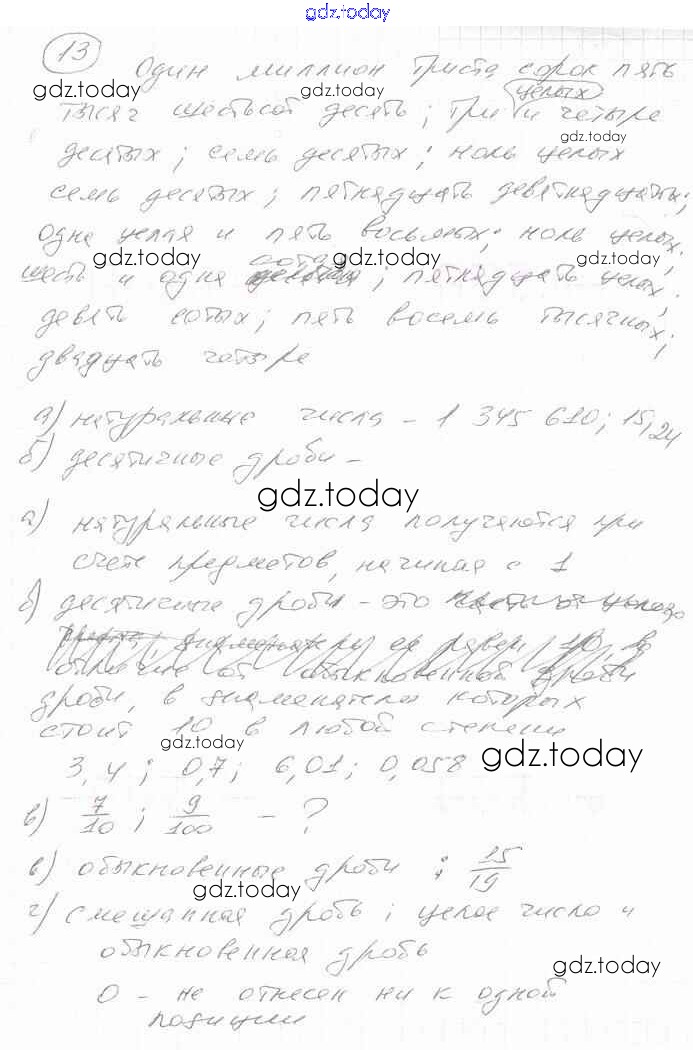 gdz.today
13 Один миллион триста сорок пять
gdz.today gdz.today
целых
тысяч шестьсот десять; три и четыре
gdz.today
десятых; семь десятых; ноль целых
семь десятых; пятнадцать девятнадцатых;
одна целая и пять восьмых; ноль целых;
gdz.today gdz.today gdz.today
сотая
шесть и одна ; пятнадцать целых;
девять сотых; пять восемь тысячных;
двадцать четыре
а) натуральные числа – 1 345 610; 15, 24
б) десятичные дроби –
gdz.today
а) натуральные числа получаются при
счете предметов, начиная с 1
б) десятичные дроби – это части от целого
знаменатель ее равен 10 в
отличие от обыкновенной дроби
дроби, в знаменателе которых
стоит 10 в любой степени
gdz.today
3,4; 0,7; 6,01; 0,058 gdz.today
в) 7/10; 9/100 – ?
в) обыкновенные дроби ; 15/19
gdz.today
г) смешанная дробь; целое число и
обыкновенная дробь
gdz.today
0 – не отнесен ни к одной
позиции